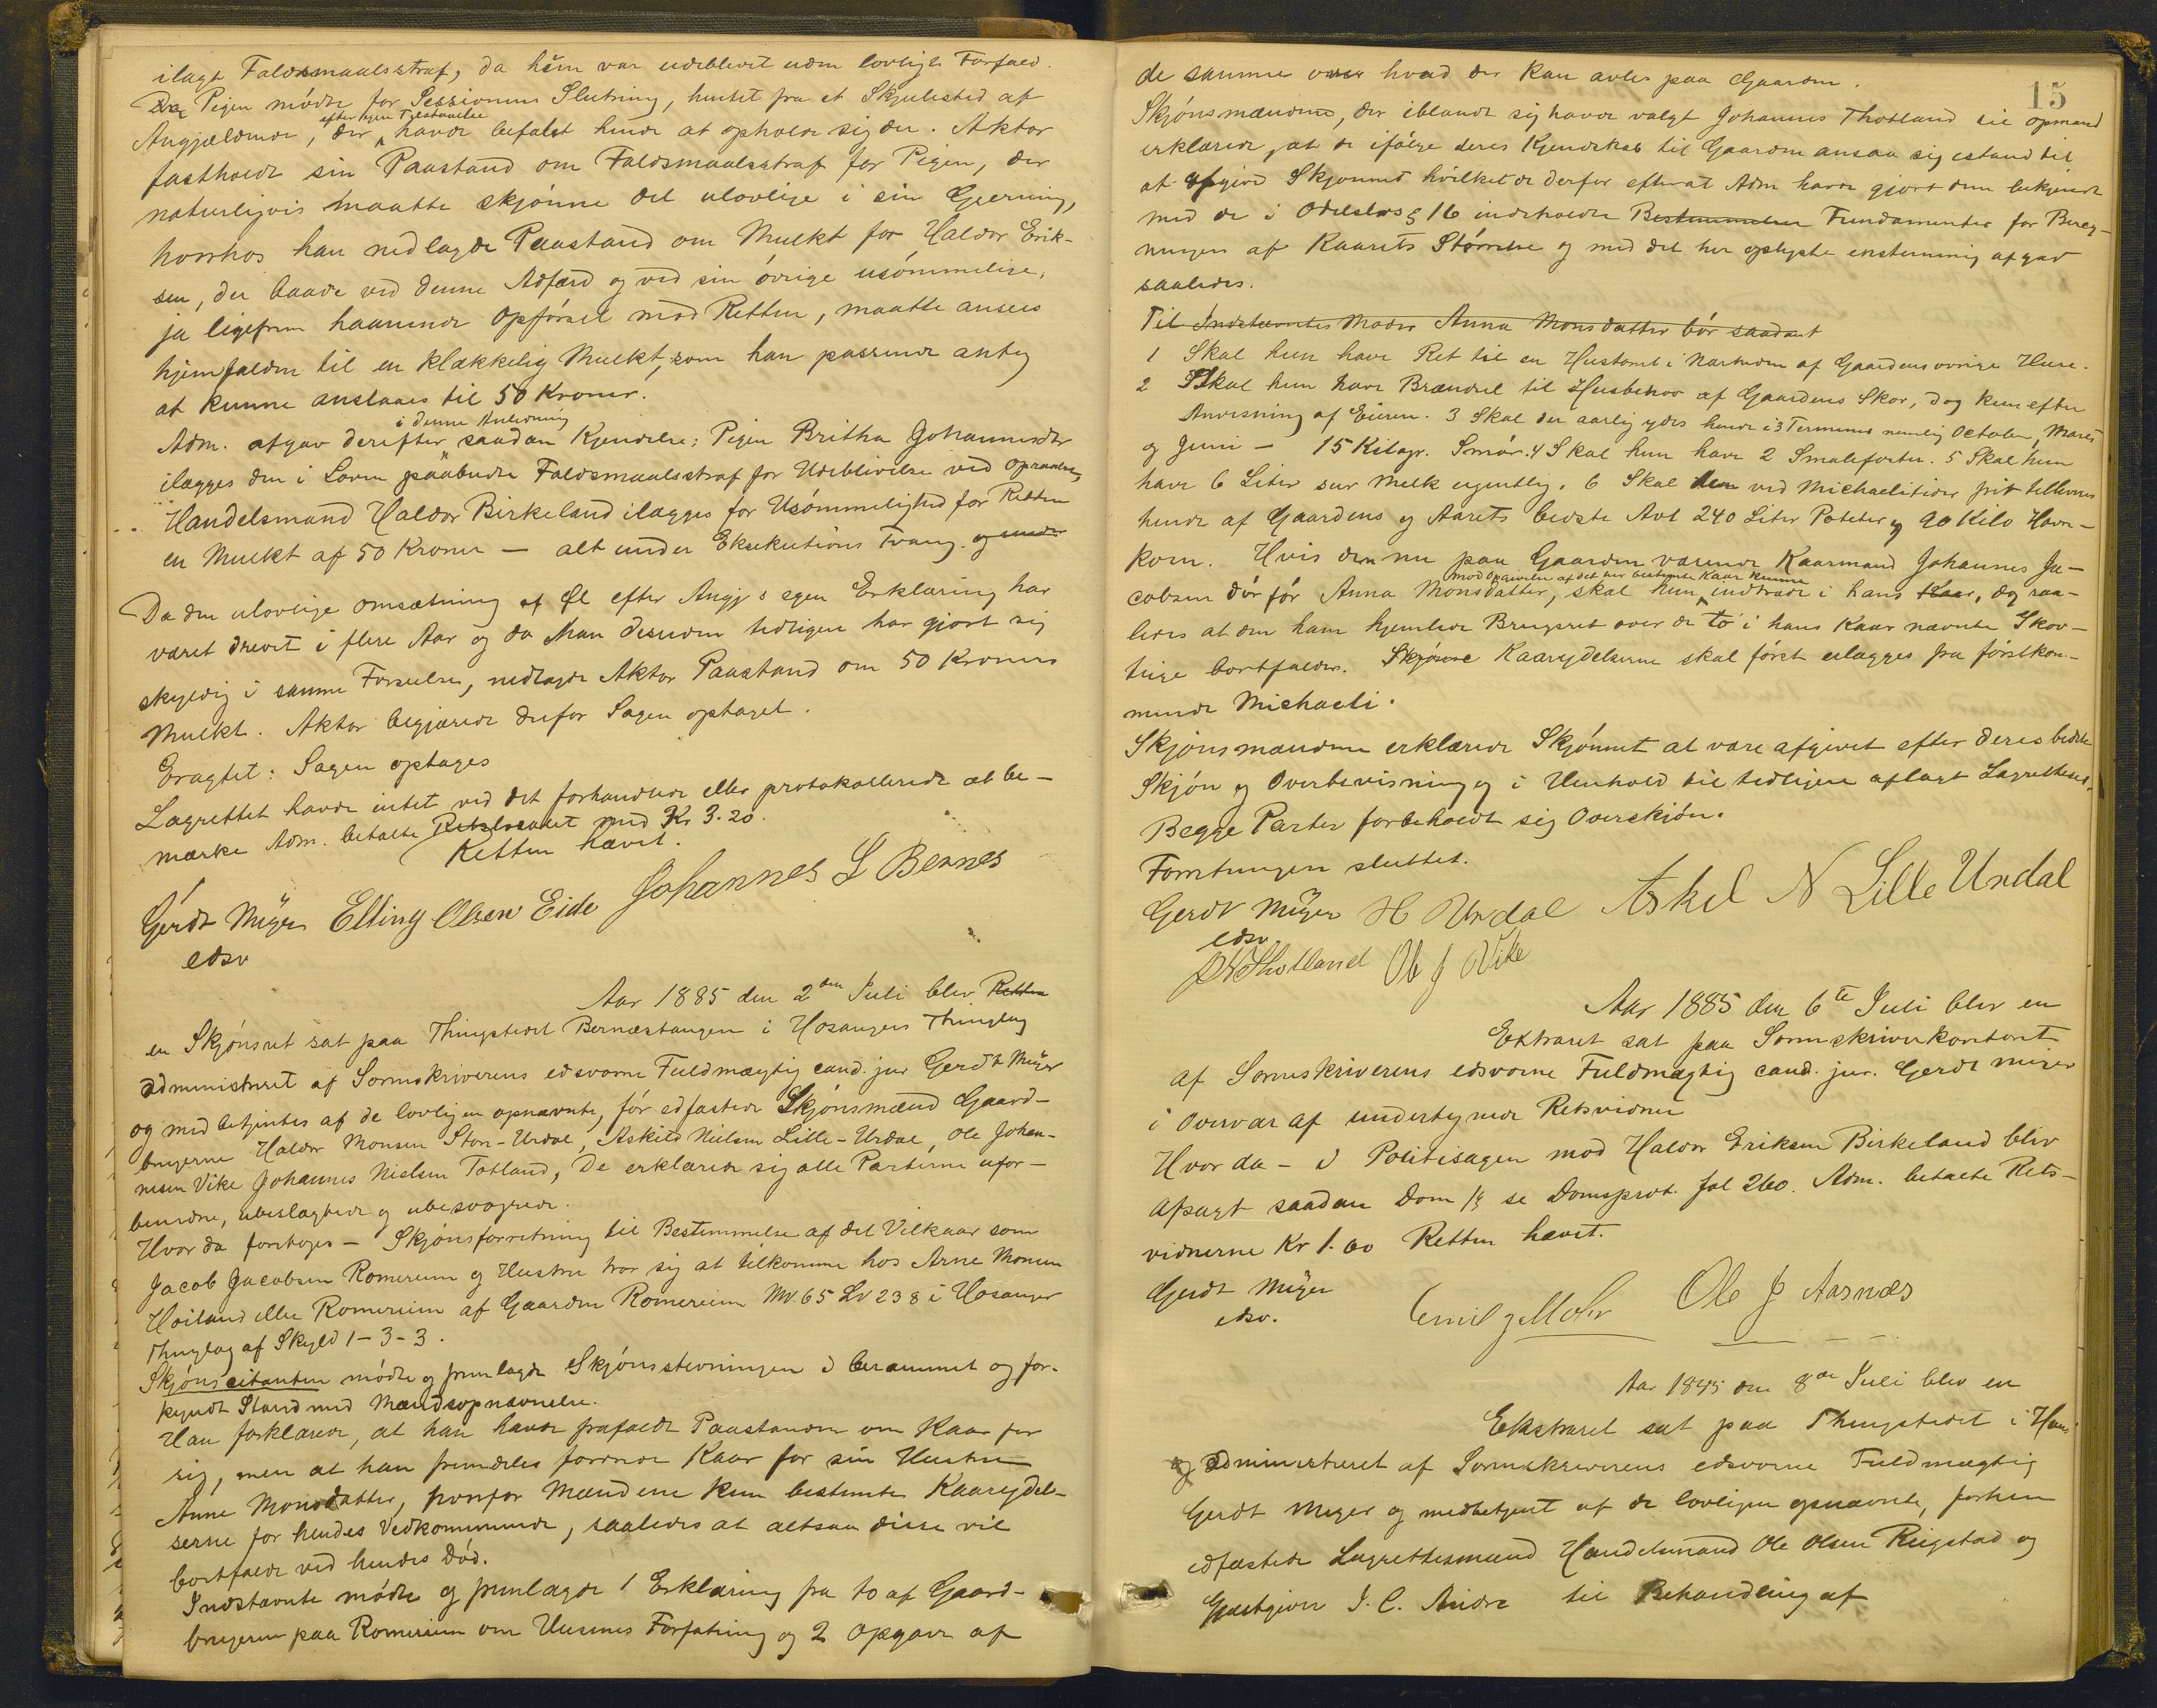 ilagt Faldsmaalsstraf, da hun var udeblevet uden lovligt Forfald.
Da Pigen mödte for Sessionens Slutning, hentet fra et Skjulested af
efter egen Tilstaaelse
Angjældende, der havde befalet hende at opholde sig der. Aktor
fastholdt sin Paastand om Faldsmaalsstraf for Pigen, der
naturligvis maatte skjönne det ulovlige i sin Gjerning,
hvorhos han nedlagde Paastand om Mulkt for Haldor Erik-
sen, der baade ved denne Adfærd og ved sin övrige usömmelige,
ja ligefrem haanende Opförsel mod Retten, maatte ansees
hjemfalden til en klækkelig Mulkt, som han passende antog
at kunne anslaaes til 50 Kroner.
i denne Anledning
Adm. afgav derefter saadan Kjendelse: Pigen Britha Johannesdtr
ilægges den i Loven paabudte Faldsmaalsstraf for Udeblivelse ved Opraabet,
Handelsmand Haldor Birkeland ilægges for Usömmelighed for Retten
en Mulkt af 50 Kroner — alt under Eksekutions Tvang. og under
Da den ulovlige Omsætning af Øl efter Angj s egen Erklæring har
været drevet i flere Aar og da han desuden tidligere har gjort sig
skyldig i samme Forseelse, nedlagde Aktor Paastand om 50 Kroners
Mulkt. Aktor begjærede derfor Sagen optaget.
Eragtet: Sagen optages
Lagrettet havde intet ved det forhandlede eller protokollerede at be-
mærke Adm. betalte Retslokalet med Kr 3.20.
Retten hævet.
Gerdt Meyer Elling Olsen Eide Johannes L Bernes
edsv
Aar 1885 den 2den Juli blev Retten
en Skjönsret sat paa Thingstedet Bernestangen i Hosangers Thinglag
administreret af Sorenskriverens edsvorne Fuldmægtig cand. jur Gerdt Meyer
og med betjentes af de lovligen opnævnte, för edfæstede Skjönsmænd Gaard-
brugerne Haldor Monsen Store-Urdal, Askild Nielsen Lille-Urdal, Ole Johan-
nesen Vike Johannes Nielsen Totland, De erklærede sig alle Parterne ufor-
bundne, ubeslægtede og ubesvogrede.
Hvor da foretoges — Skjönsforretning til Bestemmelse af det Vilkaar som
Jacob Jacobsen Romereim og Hustru tror sig at tilkomme hos Arne Monsen
Höiland eller Romereim af Gaarden Romereim Mn. 65 Ln 238 i Hosanger
Thinglag af Skyld 1-3-3.
Skjönscitanten mödte og fremlagde Skjönsstevningen i berammet og for-
kyndt Stand med Mændsopnævnelse.
Han forklarede, at han havde frafaldt Paastanden om Kaar for
sig, men at han fremdeles fordrede Kaar for sin Hustru
Anne Monsdatter, hvorfor Mændene kun bestemte Kaarydel-
serne for hendes Vedkommende, saaledes at altsaa disse vil
bortfalde ved hendes Död.
Indstævnte mödte og fremlagde 1 Erklæring fra to af Gaard-
brugerne paa Romereim om Husenes Forfatning og 2 Opgave af
15
de samme over hvad der kan avles paa Gaarden.
Skjönsmændene, der iblandt sig havde valgt Johannes Thotland til Opmand
erklærede, at de ifölge deres Kjendskab til Gaarden ansaa sig istand til
at afgive Skjønnet hvilket de derfor efterat Adm havde gjort dem bekjendt
med de i Odelslovs § 16 indeholdte Bestemmelser Fundamenter for Bereg-
ningen af Kaarets Störrelse og med det her oplyste enstemmig afgav
saaledes.
Til Indstævntes Moder Anna Monsdatter bör saadant
1 Skal hun have Ret til en Hustomt i Nærheden af Gaardens øvrige Huse.
2 Skal hun have Brændsel til Husbehov af Gaardens Skov, dog kun efter
Anvisning af Eieren. 3 Skal der aarlig ydes hende i 3 Terminer nemlig October, Marts
og Juni — 15 Kilogr. Smör. 4 Skal hun have 2 Smalefoster. 5 Skal hun
have 6 Liter sur Melk ugentlig. 6 Skal der ved Michaelitider frit tilleveres
hende af Gaardens og Aarets bedste Avl 240 Liter Poteter og 90 Kilo Havre-
korn. Hvis den nu paa Gaarden værende Kaarmand Johannes Ja-
mod Opgivelse af det her bestemte Kaar kunne
cobsen dör för Anna Monsdatter, skal hun indtræde i hans Kaar, dog saa-
ledes at den ham hjemlede Brugsret over de to i hans Kaar nævnte Skov-
teige bortfalder. Skjönne Kaarydelserne skal först erlægges fra förstkom-
mende Michaeli.
Skjönsmændene erklærede Skjönnet at være afgivet efter deres bedste
Skjön og Overbevisning og i Henhold til tidligere aflagt Lagretteed.
Begge Parter forbeholdt sig Overskjön.
Forretningen sluttet.
Gerdt Meyer H Urdal Askel N Lille Urdal
edsv.
J N Thotland Ole J Vike
Aar 1885 den 6te Juli blev en
Extraret sat paa Sorenskriverkontoret
af Sorenskriverens edsvorne Fuldmægtig cand. jur. Gerdt Meyer
i Overvær af undertegnede Retsvidner
Hvor da — I Politisagen mod Haldor Eriksen Birkeland blev
afsagt saadan Dom se Domsprot. fol 260. Adm. betalte Rets-
vidnerne Kr 1.60 Retten hævet.
Gerdt Meyer
edsv. Emil Mohr Ole J Aasnæs
Aar 1885 den 8de Juli blev en
Ekstraret sat paa Thingstedet i Haus
og administreret af Sorenskriverens edsvorne Fuldmægtig
Gerdt Meyer og medbetjent af de lovligen opnævnte, forhen
edfæstede Lagrettesmænd Handelsmand Ole Olsen Riigstad og
Gjæstgiver I. C. Andre til Behandling af